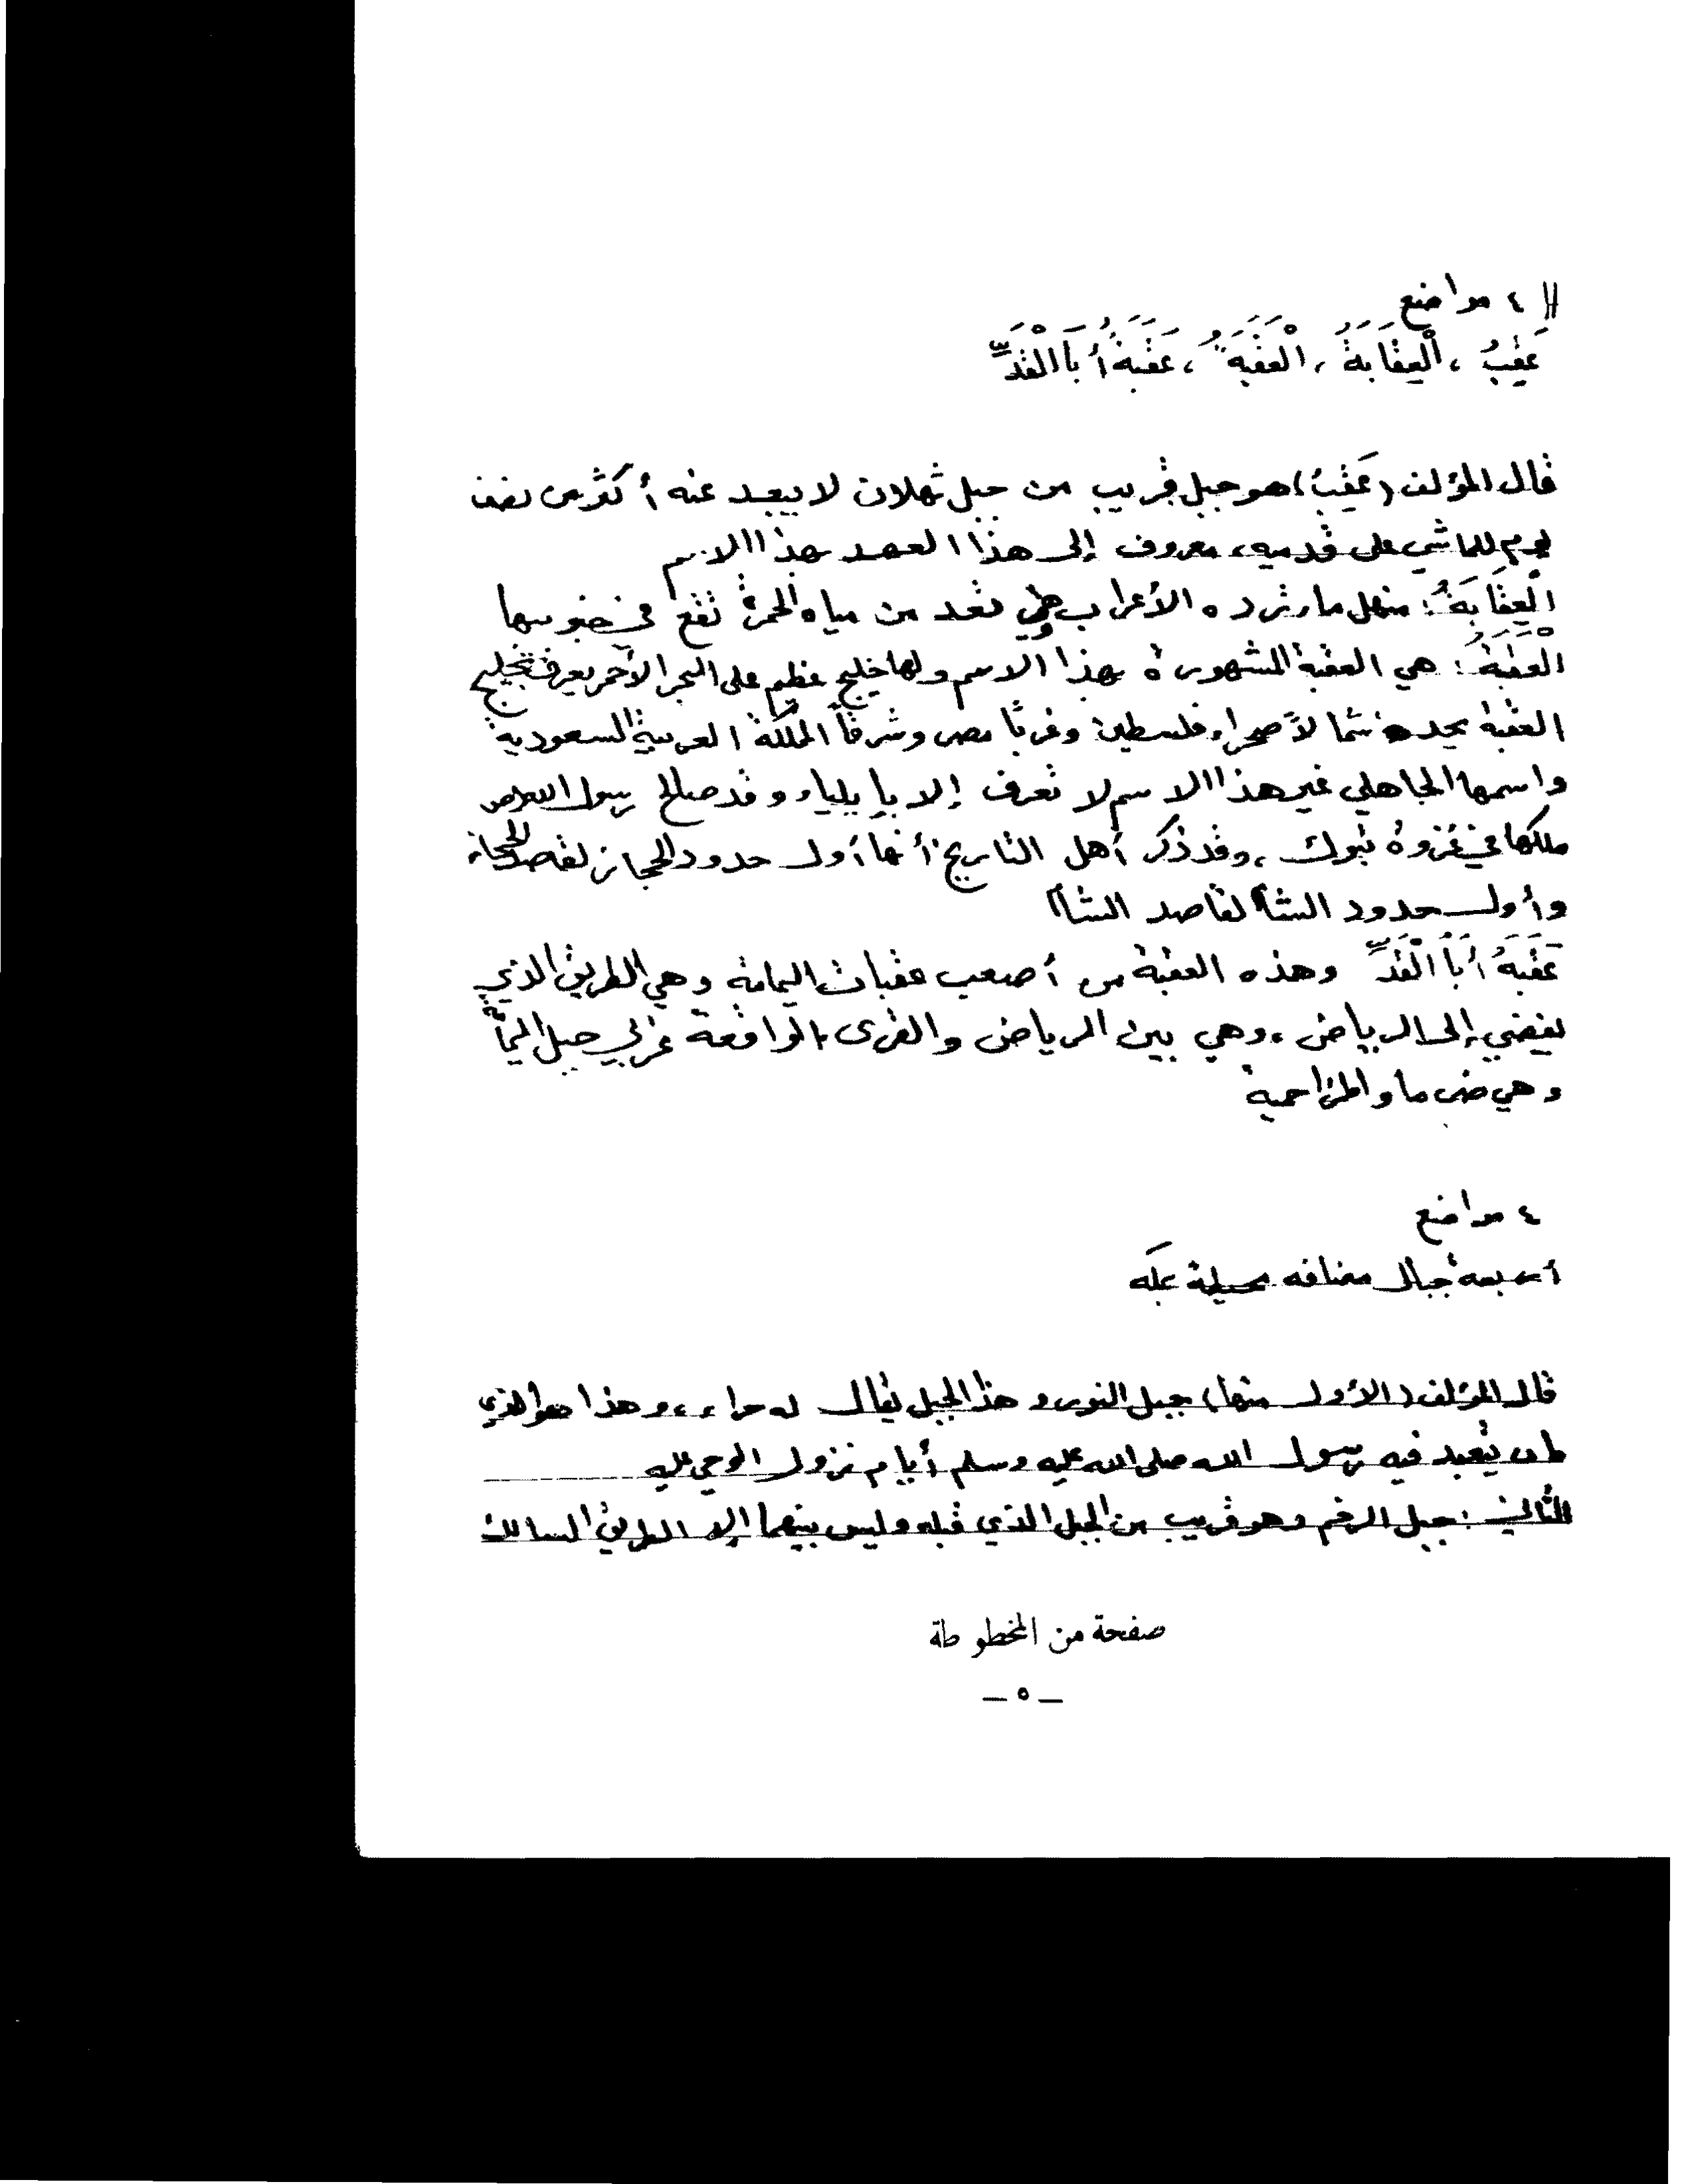 ٤ مواضع
عَقِبُ ، الْعِقَابَةُ ، الْعَقَبَةُ ، عَقَبَةُ أَبَا الْقَدِّ
قال المؤلف (عَقِبُ) هو جبل قريب من جبل ثهلان لا يبعد عنه أكثر من نصف
يوم للماشي على قدميه ، معروف إلى هذا العهد بهذا الاسم
الْعِقَابَةُ : منهل مارترده الأعراب وهي تعد من مياه الحمرة تقع في جنوبيها
الْعَقَبَةُ : هي العقبة المشهورة بهذا الاسم ولها خليج عظيم على البحر الأحمر يعرف بخليج
العقبة يحده شمالاً صحراء فلسطين وغرباً مصر وشرقاً المملكة العربية السعودية
واسمها الجاهلي غير هذا الاسم لا تعرف إلا بإيلياء وقد صالح رسول الله ص
ملكها في غزوة تبوك ، وقد ذكر أهل التاريخ أنها أول حدود الحجاز لقاصد الحجاز
وأول حدود الشام لقاصد الشام
عَقَبَةُ أَبَا الْقَدِّ وهذه العقبة من أصعب عقبات اليمامة وهي الطريق الذي
يفضي إلى الرياض ، وهي بين الرياض والقرى الواقعة غربي جبل اليمامة
وهي ضرما والمزاحمية
٤ مواضع
أربعة جبال مضافه محيطة بمكه
قال المؤلف (الأول منها) جبل النور وهذا الجبل يقال له حراء ، وهذا هو الذي
كان يتعبد فيه رسول الله صلى الله عليه وسلم أيام نزول الوحي عليه
الثاني : جبل الرخم وهو قريب من الجبل الذي قبله وليس بينهما إلا الطريق السالك
صفحة من المخطوطة
— ٥ —